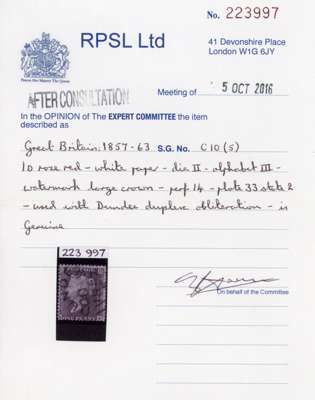 No. 223997
RPSL Ltd
41 Devonshire Place
London W1G 6JY
AFTER CONSULTATION
Meeting of 5 OCT 2016
In the OPINION of The EXPERT COMMITTEE the item
described as
Great Britain: 1857-63 S.G. No. C10(5)
1D rose red - white paper - die II - alphabet III -
watermark large crown - perf 14 - plate 33 state 2
- used with Dundee duplex obliteration - is
Genuine
223 997
ONE PENNY
On behalf of the Committee